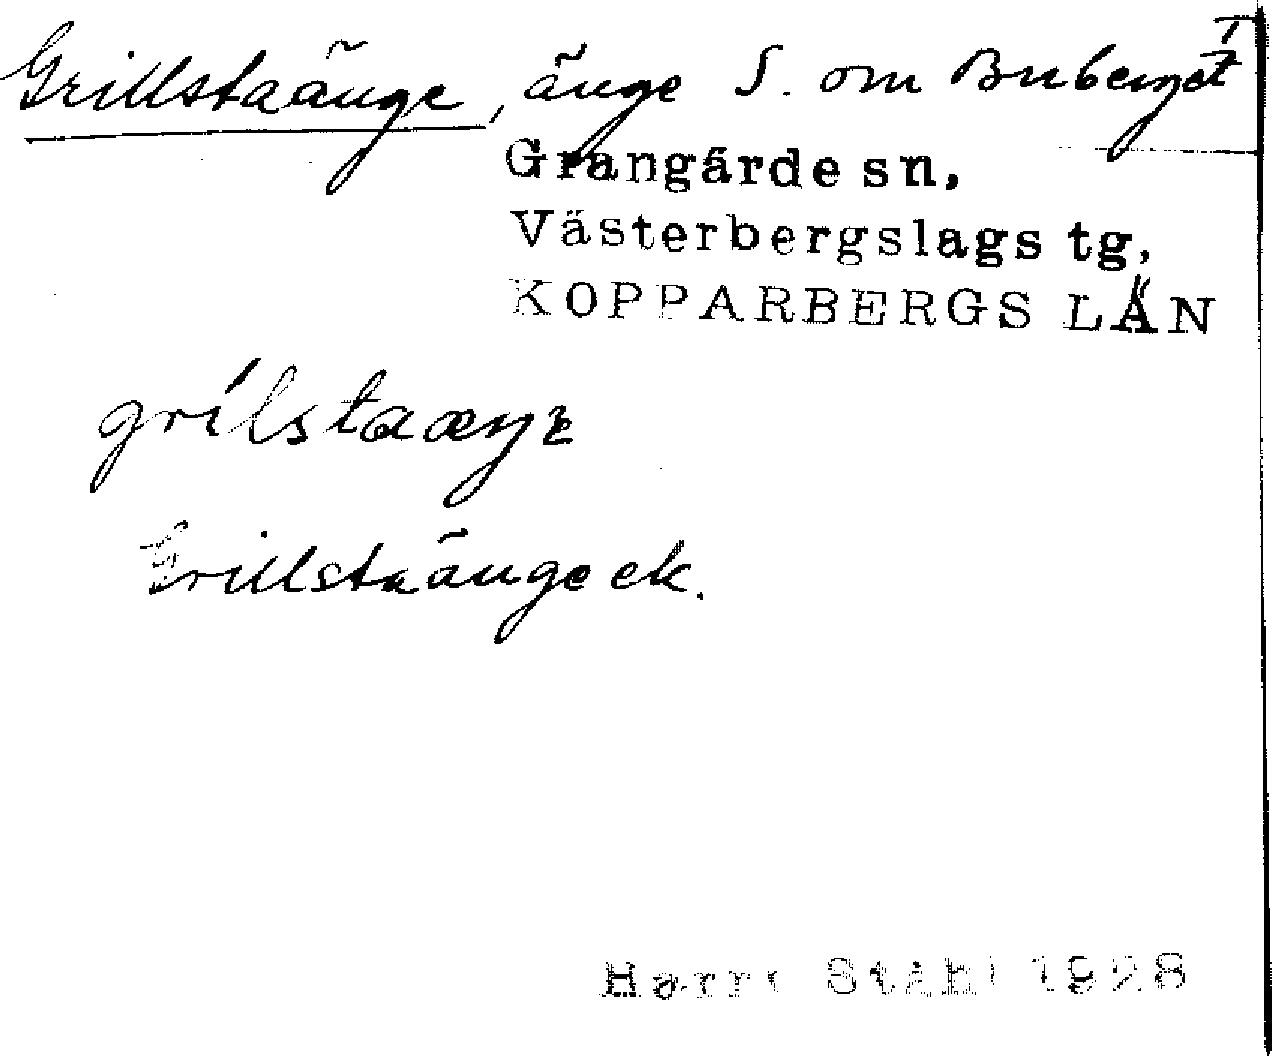 Grillstaänge, änge S. om Buberget
Grangärde sn,
Västerbergslags tg,
KOPPARBERGS LÄN
grílstaæŋɛ
Grillstaänge ek.
Harry Ståhl 1928